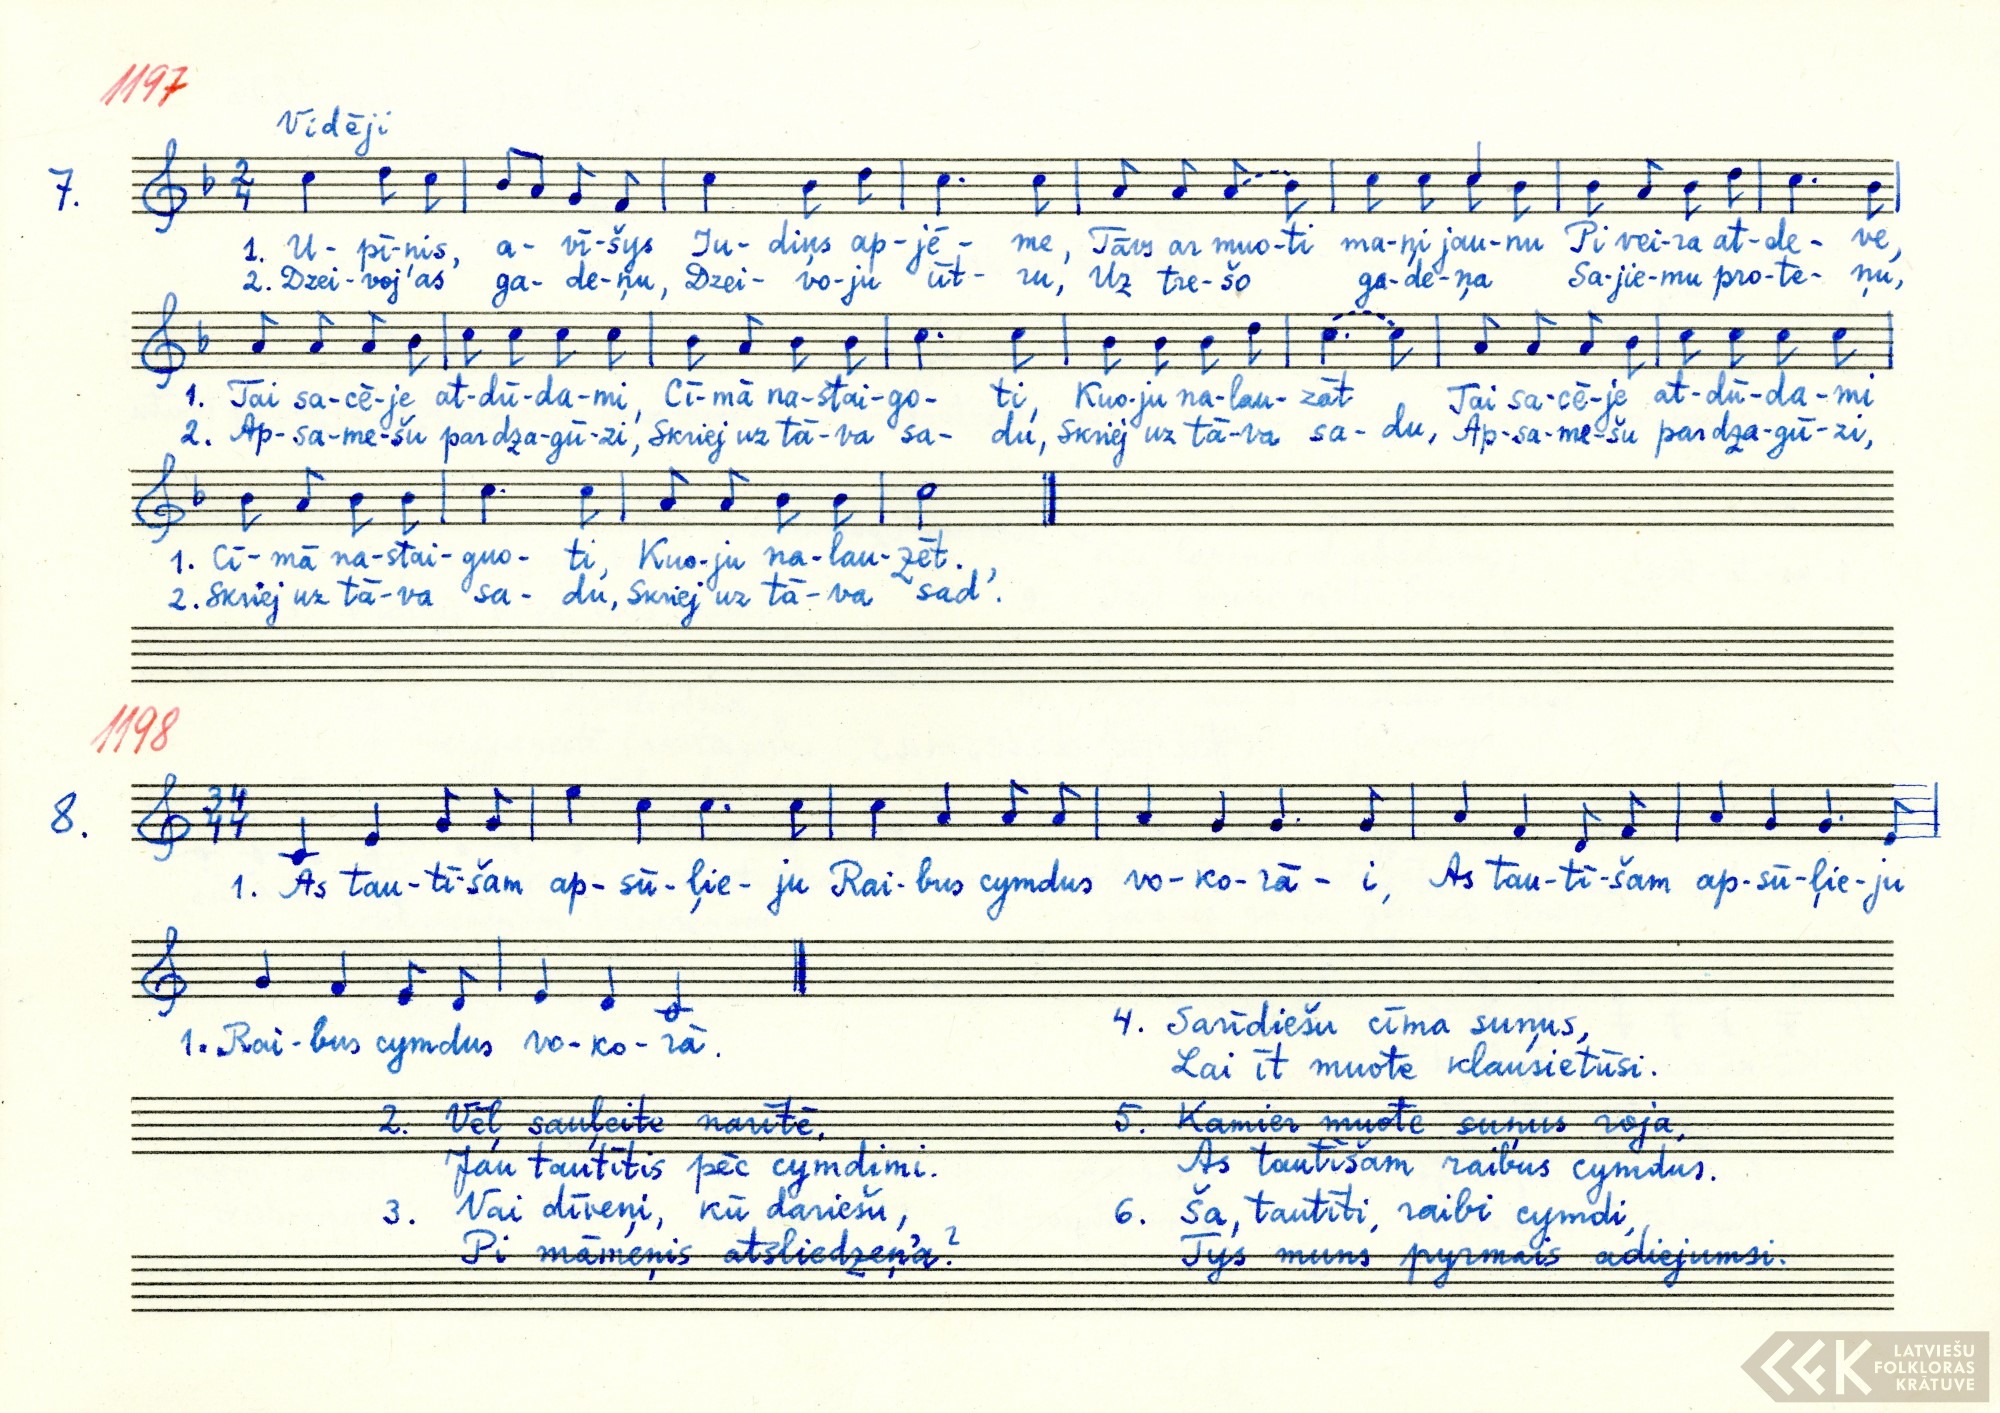 1197
Vidēji
7.
2 4
1. U-pī-nis, a-vī-šys Ju-diņs ap-jē-me, Tāvs ar muo-ti ma-ņi jau-nu Pi vei-ra at-de-ve,
2. Dzei-voj'as ga-de-ņu, Dzei-vo-ju ūt-ru, Uz tre-šo ga-de-ņa Sa-jie-mu pro-te-ņu,
1. Tai sa-cē-je at-dū-da-mi, Cī-mā na-stai-go-ti, Kuo-ju na-lau-zāt Tai sa-cē-je at-dū-da-mi
2. Ap-sa-me-šu par dza-gū-zi, Skriej uz tā-va sa-du, Skriej uz tā-va sa-du, Ap-sa-me-šu par dza-gū-zi,
1. Cī-mā na-stai-guo-ti, Kuo-ju na-lau-zēt.
2. Skriej uz tā-va sa-du, Skriej uz tā-va sad'.
1198
8.
3 4 4 4
1. As tau-tī-šam ap-sū-ļie-ju Rai-bus cymdus vo-ko-rā-i, As tau-tī-šam ap-sū-ļie-ju
1. Rai-bus cymdus vo-ko-rā.
2. Vēļ sauļeite narītē,
Jau tautītis pēc cymdimi.
3. Vai dīveņi, kū dariešu,
Pi māmeņis atsliedzeņ'a?
4. Sarīdiešu cīma suņus,
Lai īt muote klausietūsi.
5. Kamier muote suņus roja,
As tautīšam raibus cymdus.
6. Ša, tautīti, raibi cymdi,
Tys muns pyrmais adiejumsi.
LATVIEŠU
FOLKLORAS
KRĀTUVE